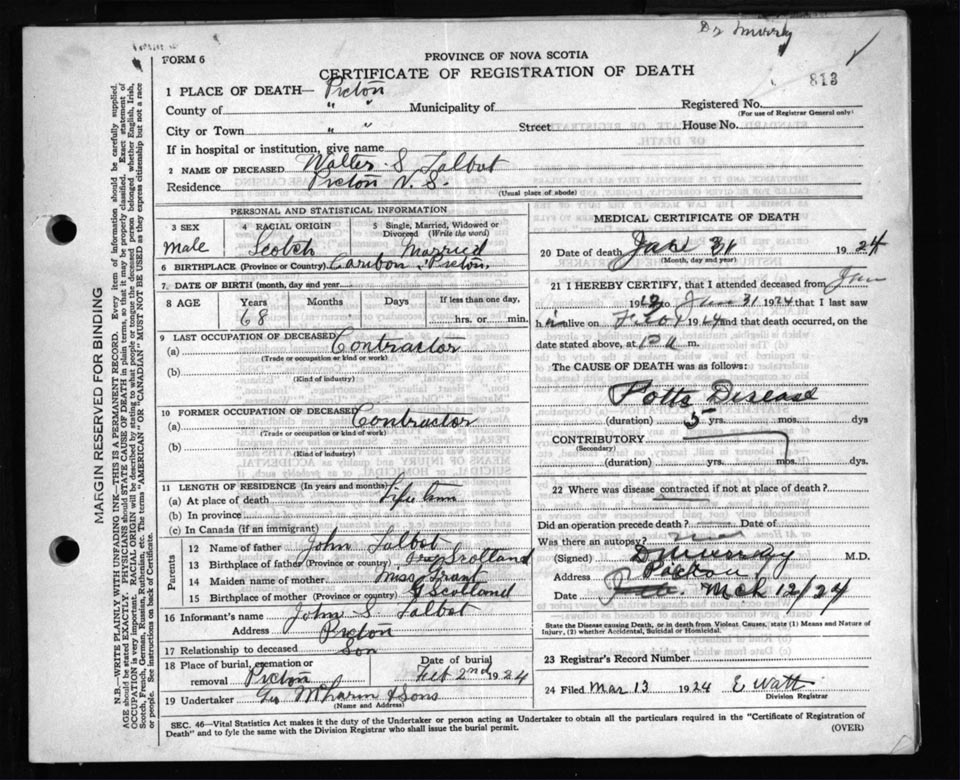 Dr Murray
FORM 6
PROVINCE OF NOVA SCOTIA
CERTIFICATE OF REGISTRATION OF DEATH
813
1 PLACE OF DEATH— Pictou
County of " " Municipality of Registered No.
(For use of Registrar General only)
City or Town " " Street House No.
If in hospital or institution, give name
2 NAME OF DECEASED Walter S Talbot
Residence Pictou N.S.
(Usual place of abode)
PERSONAL AND STATISTICAL INFORMATION
3 SEX 4 RACIAL ORIGIN 5 Single, Married, Widowed or Divorced (Write the word)
Male Scotch Married
6 BIRTHPLACE (Province or Country) Caribou, Pictou
7 DATE OF BIRTH (month, day and year)
8 AGE Years Months Days If less than one day,
68 hrs. or min.
9 LAST OCCUPATION OF DECEASED
(a) Contractor
(Trade or occupation or kind of work)
(b)
(Kind of industry)
10 FORMER OCCUPATION OF DECEASED
(a) Contractor
(Trade or occupation or kind of work)
(b)
(Kind of industry)
11 LENGTH OF RESIDENCE (In years and months)
(a) At place of death Life time
(b) In province
(c) In Canada (if an immigrant)
Parents
12 Name of father John Talbot
13 Birthplace of father (Province or country) Scotland
14 Maiden name of mother Miss Grant
15 Birthplace of mother (Province or country) Scotland
16 Informant's name John S. Talbot
Address Pictou
17 Relationship to deceased Son
18 Place of burial, cremation or removal Pictou
Date of burial Feb 2nd 1924
19 Undertaker & Sons
(Name and Address)
MEDICAL CERTIFICATE OF DEATH
20 Date of death Jan 31 1924
(Month, day and year)
21 I HEREBY CERTIFY, that I attended deceased from Jan
19 to Jan 31 1924 that I last saw
h alive on 1924 and that death occurred, on the
date stated above, at m.
The CAUSE OF DEATH was as follows:
Potts Disease
(duration) 5 yrs. mos. dys
CONTRIBUTORY
(Secondary)
(duration) yrs. mos. dys.
22 Where was disease contracted if not at place of death?
Did an operation precede death? Date of
Was there an autopsy?
(Signed) D Murray M.D.
Address Pictou
Date Mch 12/24
State the Disease causing Death, or in death from Violent Causes, state (1) Means and Nature of
Injury, (2) whether Accidental, Suicidal or Homicidal.
23 Registrar's Record Number
24 Filed Mar 13 1924 E Watt
Division Registrar
SEC. 46—Vital Statistics Act makes it the duty of the Undertaker or person acting as Undertaker to obtain all the particulars required in the "Certificate of Registration of
Death" and to fyle the same with the Division Registrar who shall issue the burial permit.
(OVER)
MARGIN RESERVED FOR BINDING
N.B.—WRITE PLAINLY WITH UNFADING INK—THIS IS A PERMANENT RECORD. Every item of information should be carefully supplied.
AGE should be stated EXACTLY. PHYSICIANS should STATE CAUSE OF DEATH in plain terms, so that it may be properly classified. Exact statement of
OCCUPATION is very important. RACIAL ORIGIN will be described by stating to what people or tongue the deceased person belonged whether English, Irish,
Scotch, French, German, Russian, Ruthenian, etc. The terms "AMERICAN" or "CANADIAN" MUST NOT BE USED as they express citizenship but not a race
or people. See instructions on back of Certificate.